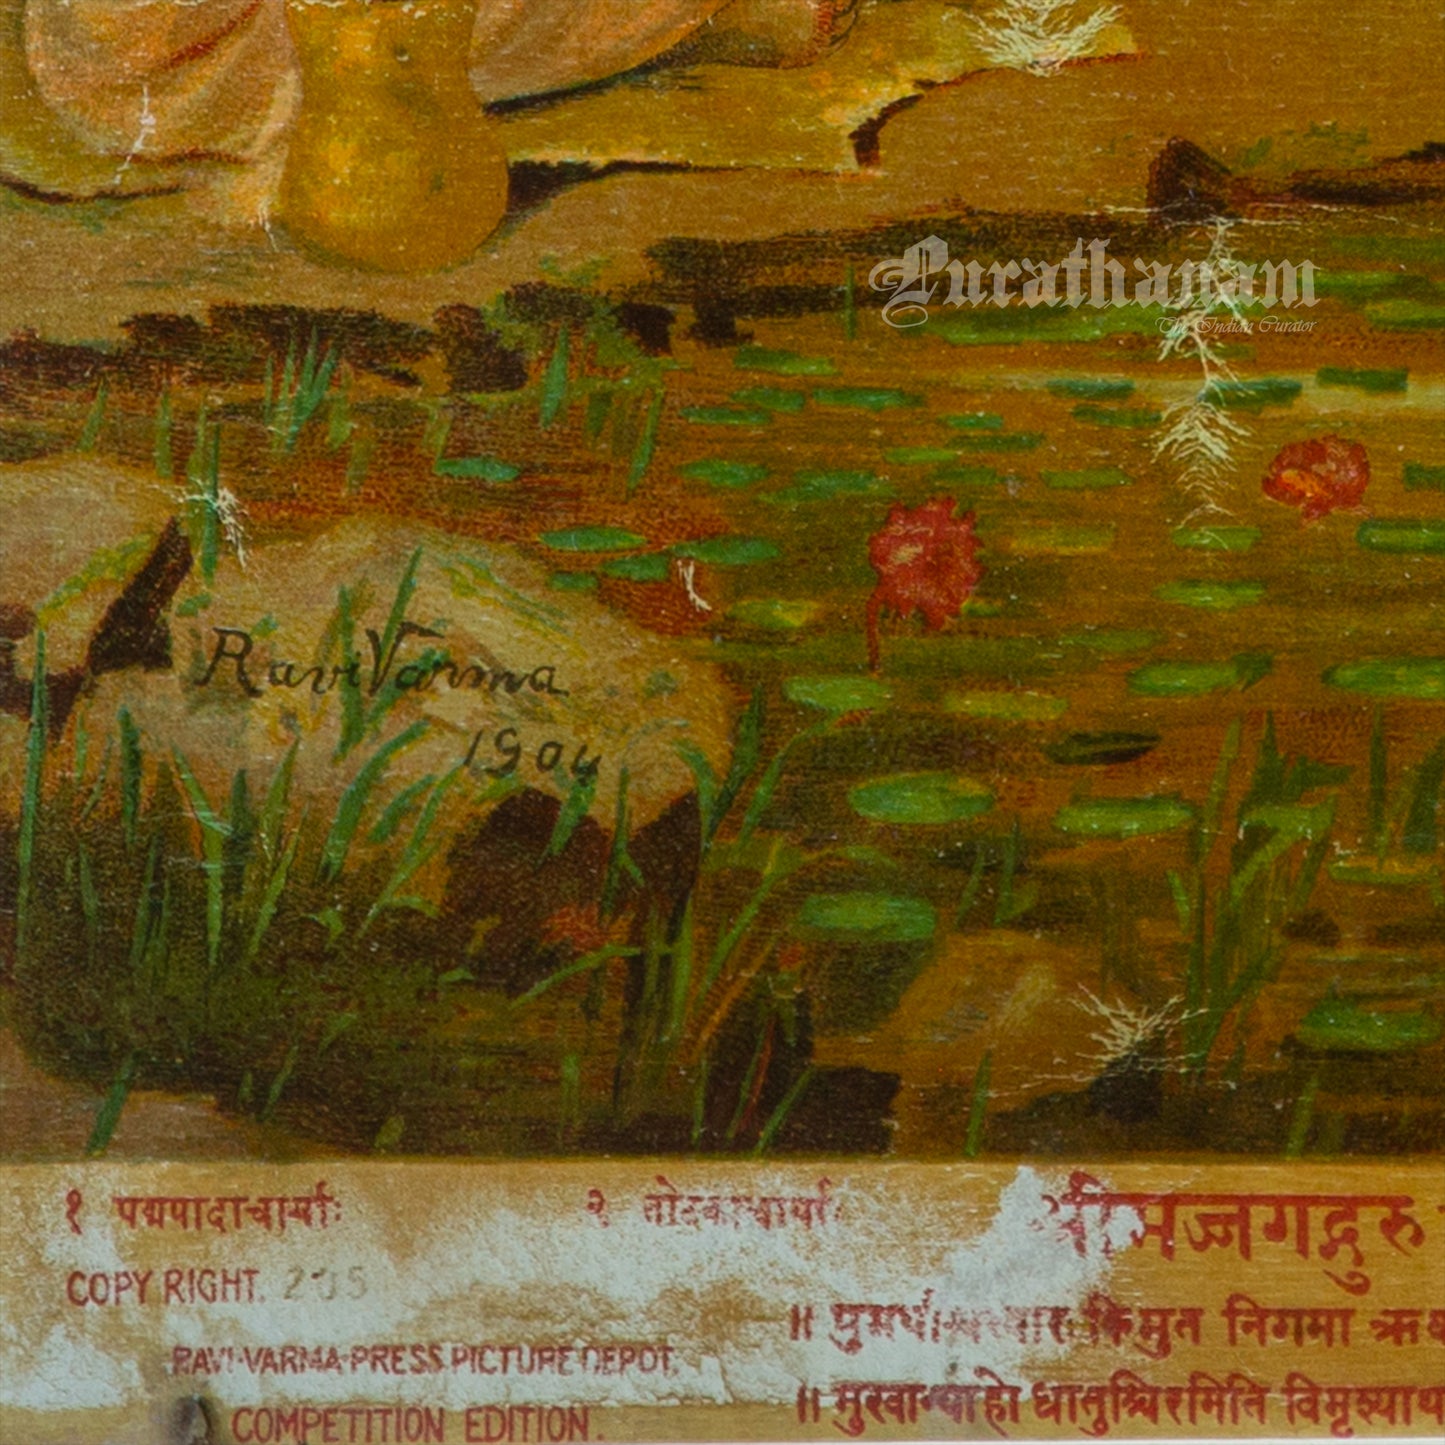 Purathanam
The Indian Curator
Ravi Varma
1904
१ पद्मपादाचार्याः २ तोटकाचार्याः श्रीमज्जगद्गुरु
COPY RIGHT. 205
॥ किमुत निगमा
RAVI-VARMA-PRESS PICTURE DEPOT.
॥
COMPETITION EDITION.